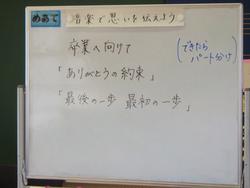 めあて 音楽で思いを伝えよう
卒業へ向けて
(できたら
パート分け)
「ありがとうの約束」
「最後の一歩 最初の一歩」